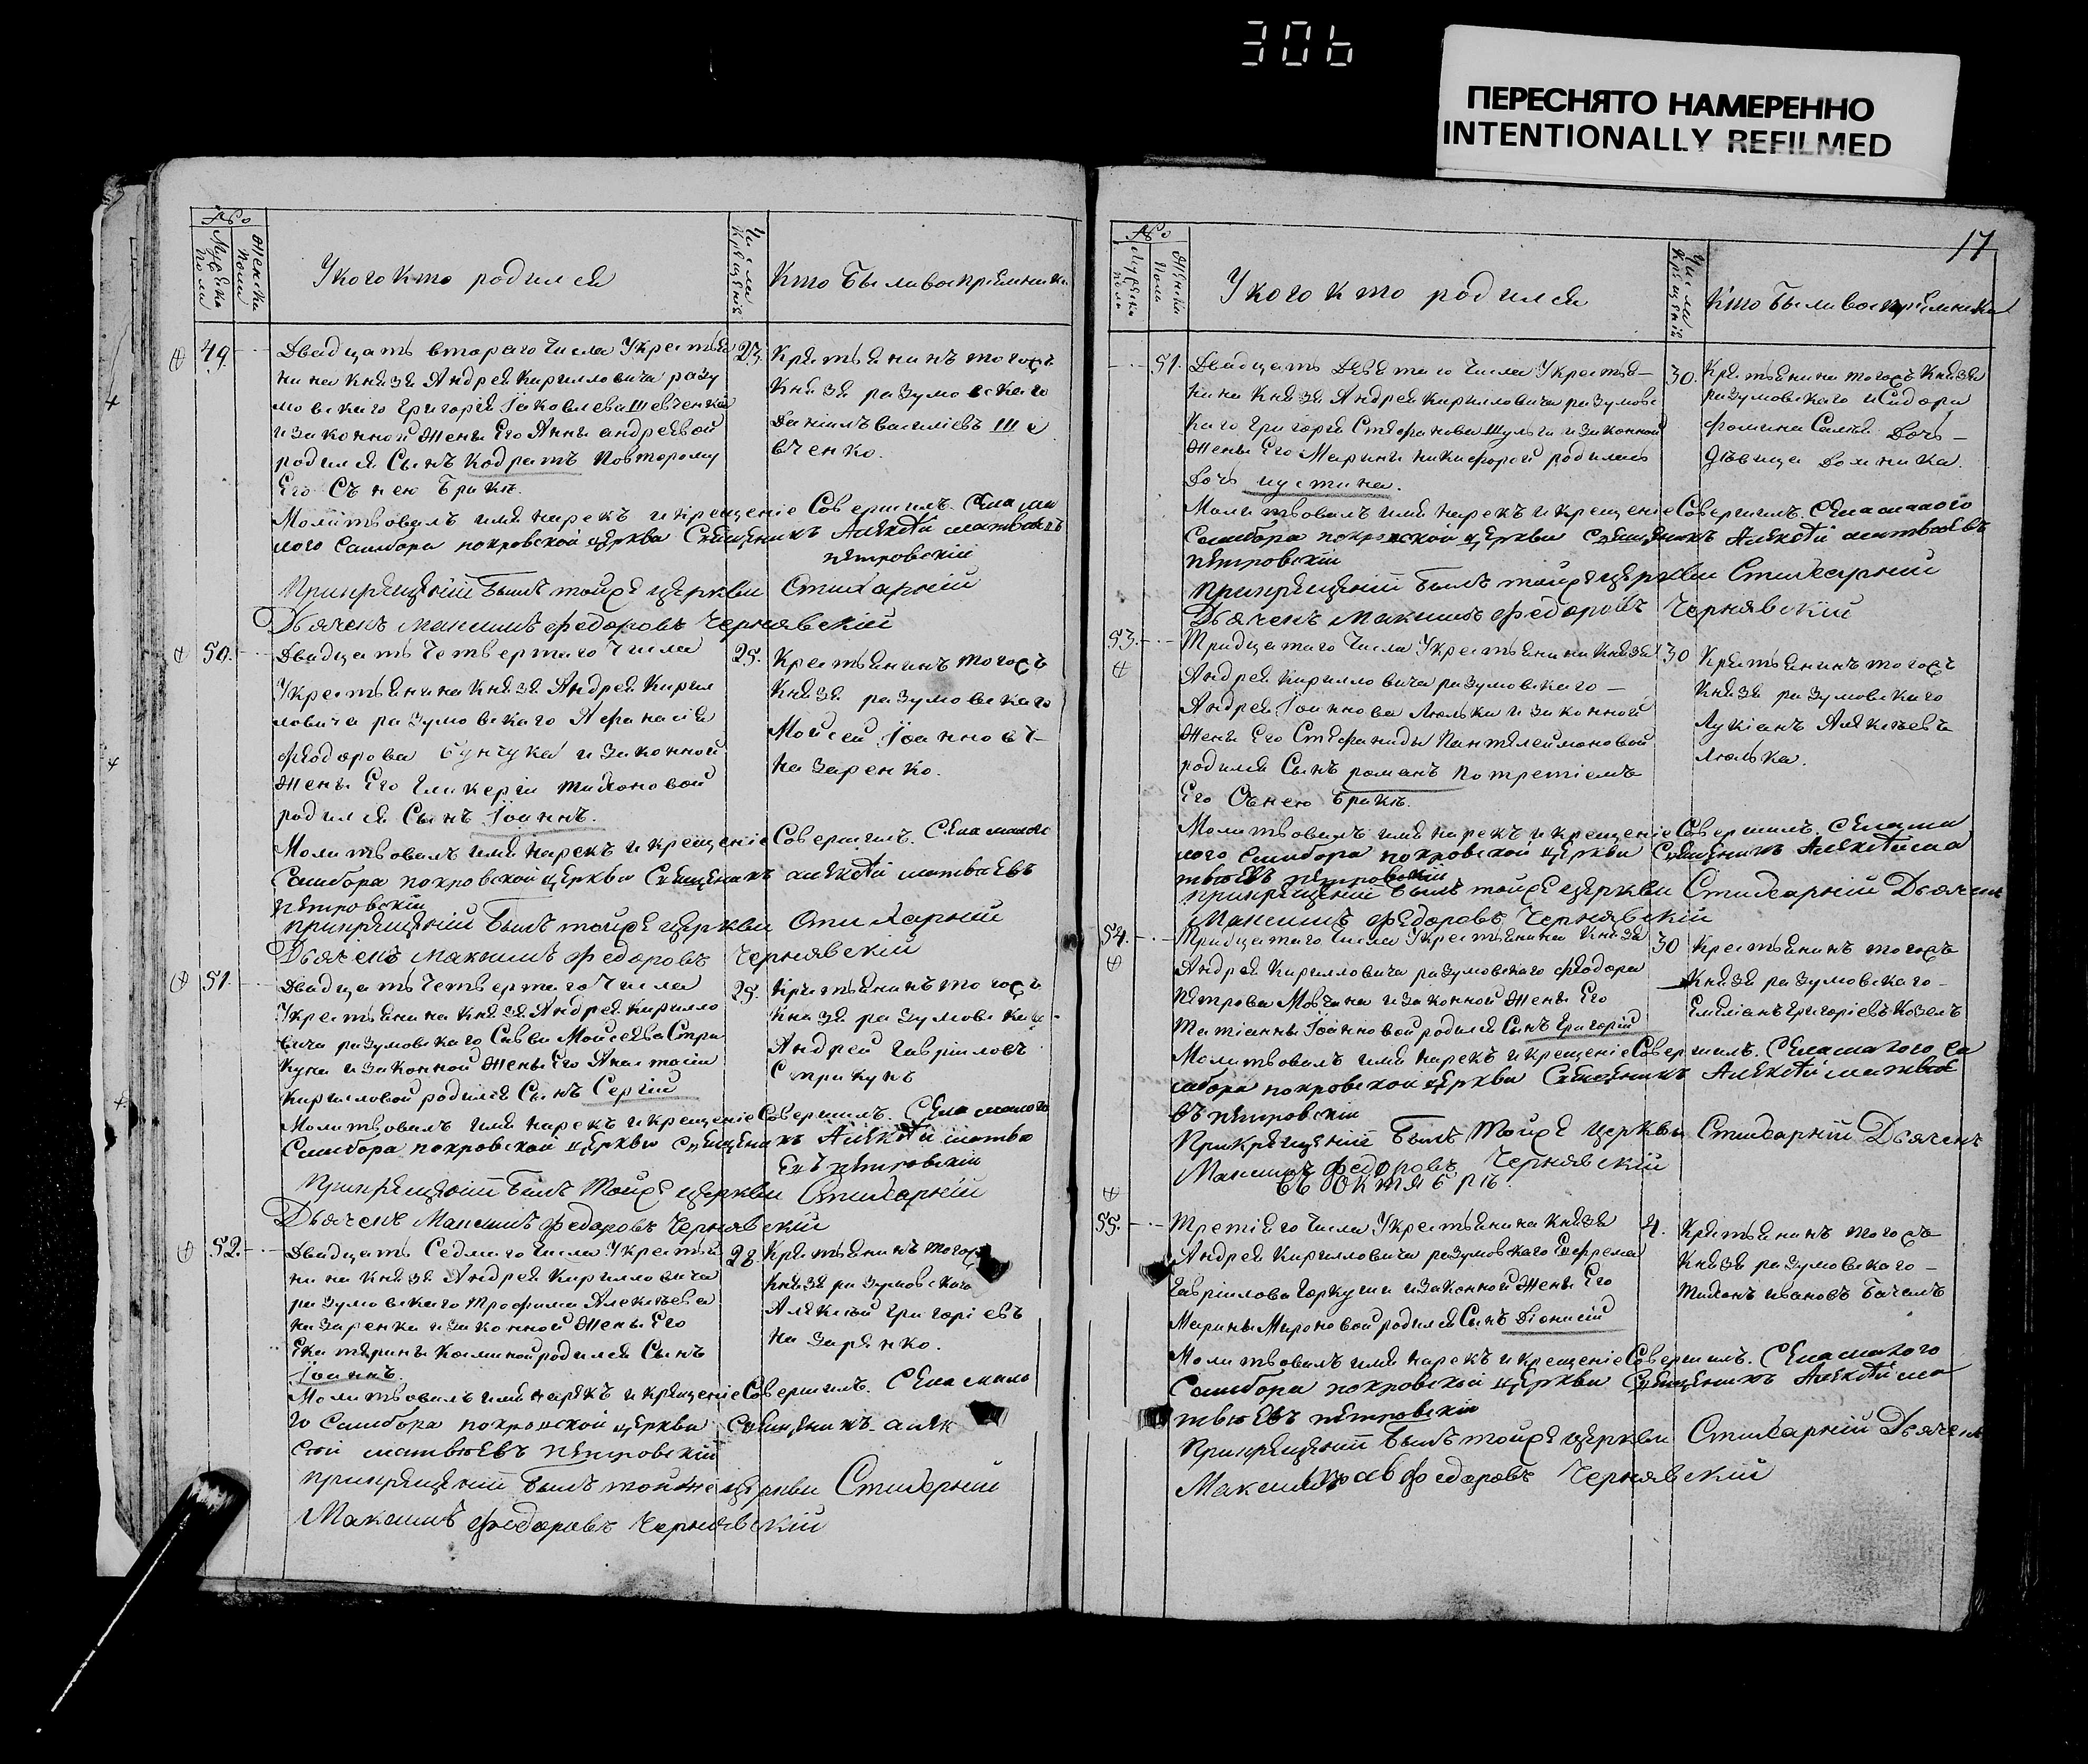 306
ПЕРЕСНЯТО НАМЕРЕННО
INTENTIONALLY REFILMED
№
Мужска пола
Женска пола
У кого кто родился
Числа Крещенія
Кто были воспріемники
49.
Двадцать втораго Числа У крестья
нина Князя Андрея Кирилловича разу
мовскаго Григорія Іаковлева Шевченка
и законной Жены Его Анны андреевой
родился Сынъ Кодратъ По второму
Его Съ нею бракѣ.
23.
Крестьянинъ тогожъ
Князя разумовскаго
Даніилъ василіевъ Ше
вченко.
Молитвовалъ имя нарекъ и крещеніе Совершилъ. Села ма
лого Самбора покровской церкви Священникъ Алексѣй матвѣевъ
петровскій
При крещеніи былъ тойже церкви Стихарній
Дьячекъ Максимъ Федоровъ Чернявскій
50.
Двадцать Четвертаго Числа
У крестьянина Князя Андрея Кирил
ловича разумовскаго Афанасія
Феодорова бунчука и законной
Жены Его Гликеріи Тихоновой
родился Сынъ Іоаннъ.
25.
Крестьянинъ тогожъ
Князя разумовскаго
Мойсей Іоанновъ
назаренко.
Молитвовалъ имя нарекъ и крещеніе Совершилъ. Села малого
Самбора покровской церкви Священникъ алексѣй матвѣевъ
петровскій
при крещеніи былъ тойже церкви Стихарній
Дьячекъ Максимъ Федоровъ Чернявскій
51.
Двадцать Четвертаго Числа
У крестьянина Князя Андрея Кирилло
вича разумовскаго Саввы Мойсеева Стри
куна и законной Жены Его Анастасіи
Кирилловой родился Сынъ Сергій
25.
Крестьянинъ тогожъ
Князя разумовскаго
Андрей Гавріиловъ
Стрикунъ
Молитвовалъ имя нарекъ и крещеніе Совершилъ. Села малого
Самбора покровской церкви священникъ Алексѣй матвѣ
евъ петровскій
При крещеніи былъ тойже церкви Стихарній
Дьячекъ Максимъ Федоровъ Чернявскій
52.
Двадцать Седмаго Числа У крестья
нина Князя Андрея Кирилловича
разумовскаго Трофима Алексѣева
назаренка и законной Жены Его
Екатерины Косминой родился Сынъ
Іоаннъ.
28.
Крестьянинъ тогожъ
Князя разумовскаго
Алексѣй григоріевъ
назаренко.
Молитвовалъ имя нарекъ и крещеніе Совершилъ. Села мало
го Самбора покровской церкви Священникъ алек
сѣй матвѣевъ петровскій
при крещеніи былъ тойже церкви Стихарній
Максимъ Федоровъ Чернявскій
17
№
Мужска пола
Женска Пола
У кого кто родился
Числа Крещенія
Кто были воспріемники
51.
Двадцать Девятаго Числа У крестья–
нина Князя Андрея Кирилловича разумовс
каго Григорія Стефанова Шульги и законной
Жены Его Марины никифорой родилась
Дочь иустина.
30.
Крестьянина тогожъ Князя
разумовскаго исидора
фомина Дочь–
дѣвица Домникa.
Молитвовалъ имя нарекъ и крещеніе Совершилъ. Села малого
Самбора покровской церкви священникъ Алексѣй матвѣевъ
петровскій
при крещеніи былъ тойже церкви Стихарній
Дьячекъ Максимъ Федоровъ Чернявскій
53.
Тридцатаго Числа У крестьянина Князя
Андрея Кирилловича разумовскаго–
Андрея Іоаннова Люльки и законной
Жены Его Стефаниды Пантелеймоновой
родился Сынъ романъ По третіемъ
Его Съ нею бракѣ.
30
Крестьянинъ тогожъ
Князя разумовскаго
Лукіанъ Алексѣевъ
Люлька.
Молитвовалъ имя нарекъ и крещеніе Совершилъ. Села ма
лого Самбора покровской церкви Священникъ Алексѣй ма
твѣевъ петровскій
при крещеніи былъ тойже церкви Стихарній Дьячекъ
Максимъ Федоровъ Чернявскій
54.
Тридцатаго Числа У крестьянина Князя
Андрея Кирилловича разумовскаго Феодора
Петрова Мовчана и законной Жены Его
Татіанны Іоанновой родился Сынъ григорій
30
Крестьянинъ тогожъ
Князя разумовскаго–
Емиліанъ григоріевъ Козелъ
Молитвовалъ имя нарекъ и крещеніе Совершилъ. Села малого Са
мбора покровской церкви Священникъ Алексѣй матвѣе
въ петровскій
При крещеніи былъ тойже церкви Стихарній Дьячекъ
Максимъ Федоровъ Чернявскій
Въ Октябрѣ
55.
Третіяго Числа У крестьянина Князя
Андрея Кирилловича разумовскаго Ефрема
Гавріилова Горкуши и законной Жены Его
Марины Мироновой родился Сынъ Діонисій
4.
Крестьянинъ тогожъ
Князя разумовскаго–
Тихонъ ивановъ
Молитвовалъ имя нарекъ и крещеніе Совершилъ. Села малого
Самбора покровской церкви Священникъ Алексѣй ма
твѣевъ петровскій
При крещеніи былъ тойже церкви Стихарній Дьячекъ
Максимъ Федоровъ Чернявскій